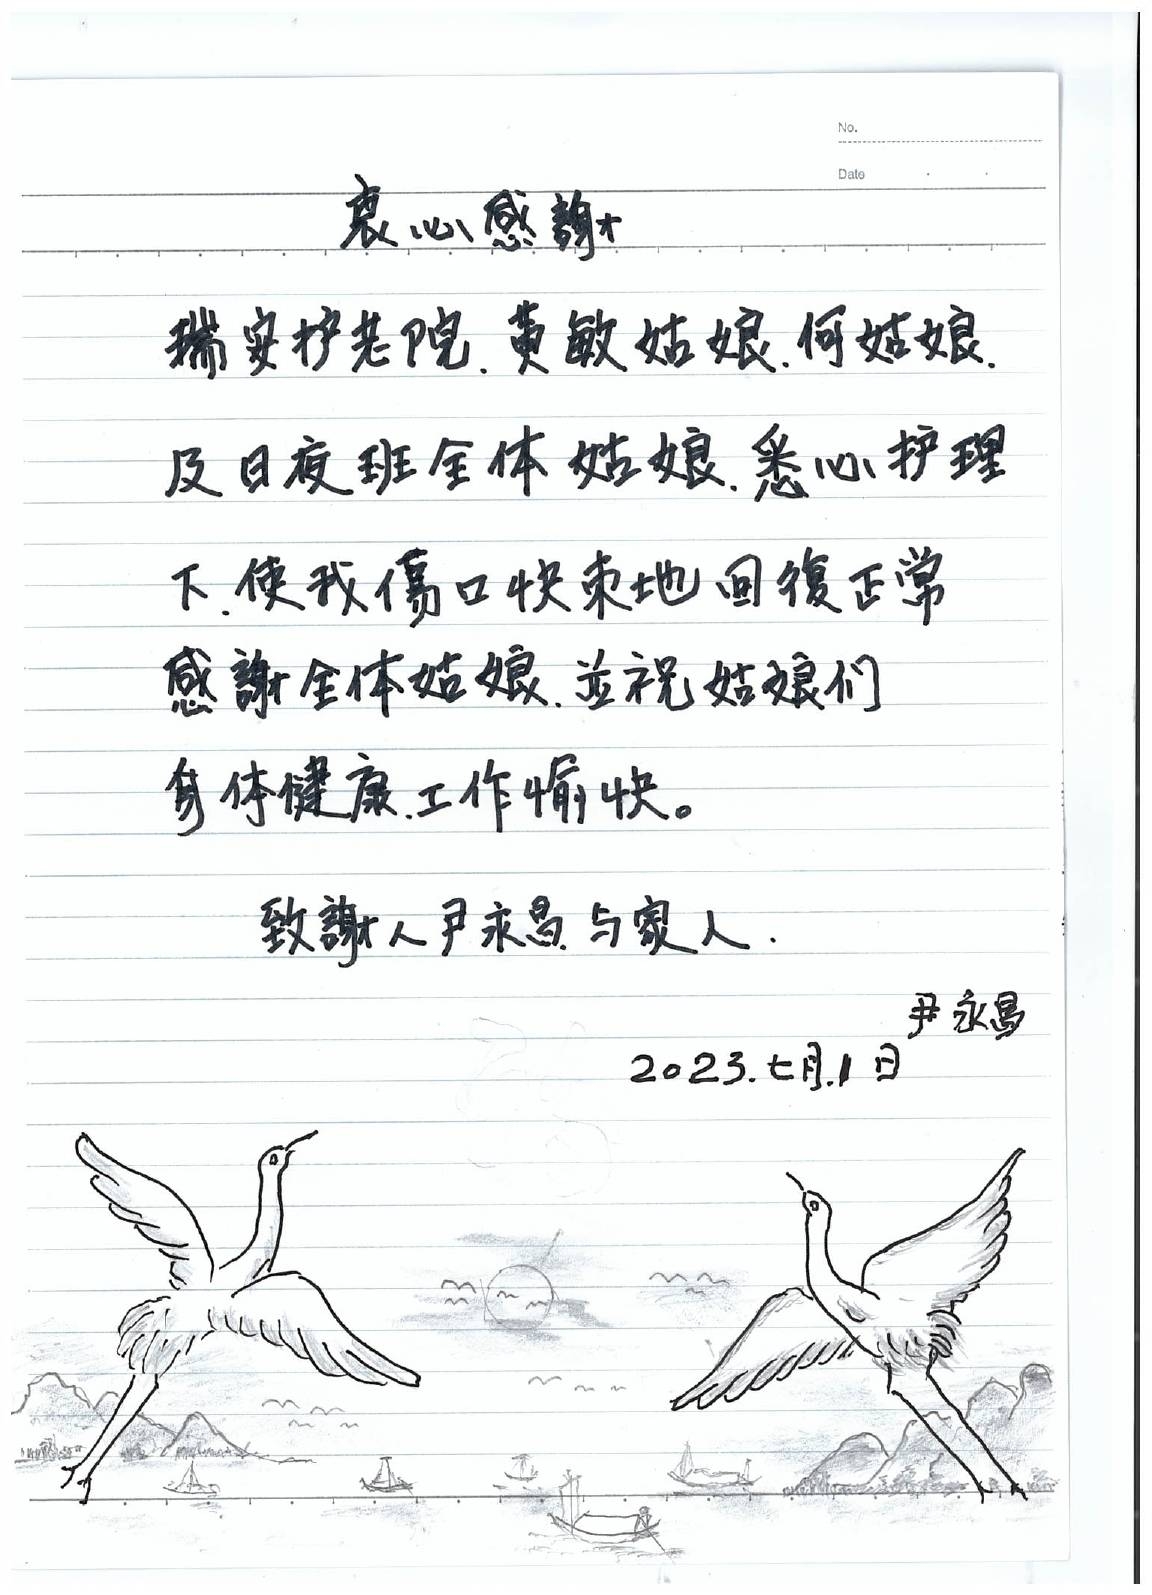 No.
Date
衷心感謝
瑞安护老院.黄敏姑娘.何姑娘.
及日夜班全体姑娘.悉心护理
下.使我傷口快束地回復正常
感謝全体姑娘.並祝姑娘们
身体健康.工作愉快。
致謝人尹永昌与家人.
尹永昌
2023.七月.1日